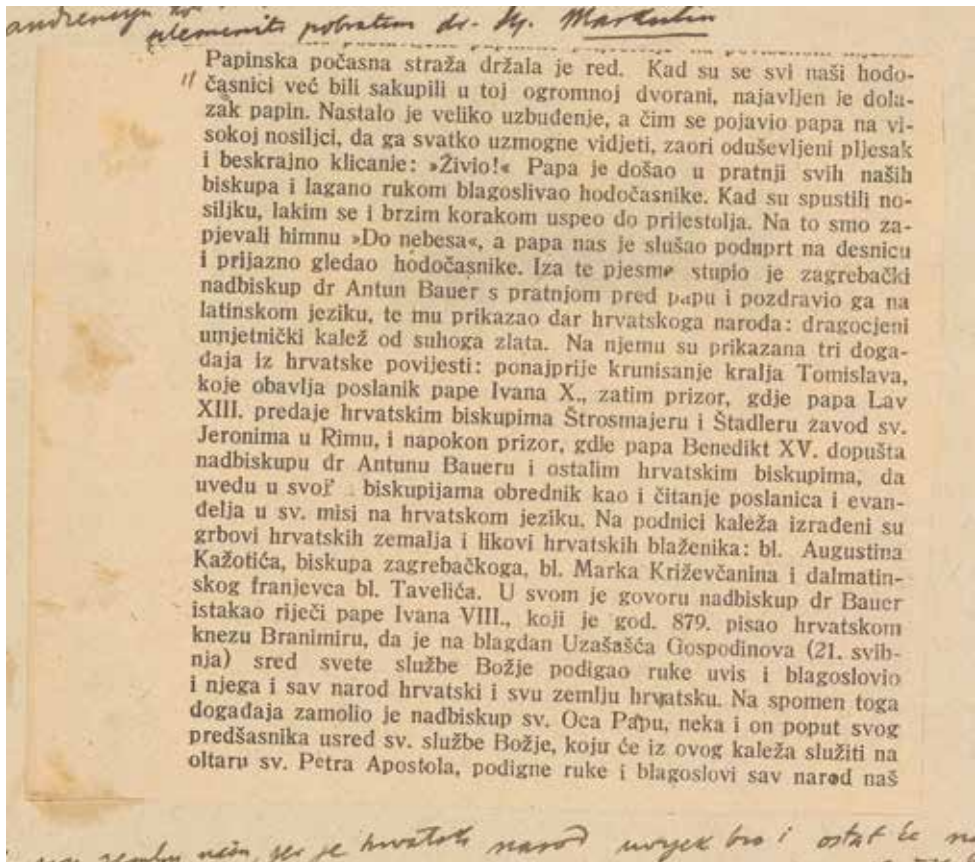 plemeniti pobratim dr. Markulin
Papinska počasna straža držala je red. Kad su se svi naši hodo-
" časnici već bili sakupili u toj ogromnoj dvorani, najavljen je dola-
zak papin. Nastalo je veliko uzbuđenje, a čim se pojavio papa na vi-
sokoj nosiljci, da ga svatko uzmogne vidjeti, zaori oduševljeni pljesak
i beskrajno klicanje: »Živio!« Papa je došao u pratnji svih naših
biskupa i lagano rukom blagoslivao hodočasnike. Kad su spustili no-
siljku, lakim se i brzim korakom uspeo do prijestolja. Na to smo za-
pjevali himnu »Do nebesa«, a papa nas je slušao poduprt na desnicu
i prijazno gledao hodočasnike. Iza te pjesme stupio je zagrebački
nadbiskup dr Antun Bauer s pratnjom pred papu i pozdravio ga na
latinskom jeziku, te mu prikazao dar hrvatskoga naroda: dragocjeni
umjetnički kalež od suhoga zlata. Na njemu su prikazana tri doga-
đaja iz hrvatske povijesti: ponajprije krunisanje kralja Tomislava,
koje obavlja poslanik pape Ivana X., zatim prizor, gdje papa Lav
XIII. predaje hrvatskim biskupima Štrosmajeru i Štadleru zavod sv.
Jeronima u Rimu, i napokon prizor, gdje papa Benedikt XV. dopušta
nadbiskupu dr Antunu Baueru i ostalim hrvatskim biskupima, da
uvedu u svoj biskupijama obrednik kao i čitanje poslanica i evan-
đelja u sv. misi na hrvatskom jeziku. Na podnici kaleža izrađeni su
grbovi hrvatskih zemalja i likovi hrvatskih blaženika: bl. Augustina
Kažotića, biskupa zagrebačkoga, bl. Marka Križevčanina i dalmatin-
skog franjevca bl. Tavelića. U svom je govoru nadbiskup dr Bauer
istakao riječi pape Ivana VIII., koji je god. 879. pisao hrvatskom
knezu Branimiru, da je na blagdan Uzašašća Gospodinova (21. svib-
nja) sred svete službe Božje podigao ruke uvis i blagoslovio
i njega i sav narod hrvatski i svu zemlju hrvatsku. Na spomen toga
događaja zamolio je nadbiskup sv. Oca Papu, neka i on poput svog
predšasnika usred sv. službe Božje, koju će iz ovog kaleža služiti na
oltaru sv. Petra Apostola, podigne ruke i blagoslovi sav narod naš
zemlju našu, jer je hrvatski narod uvijek bio i ostat će